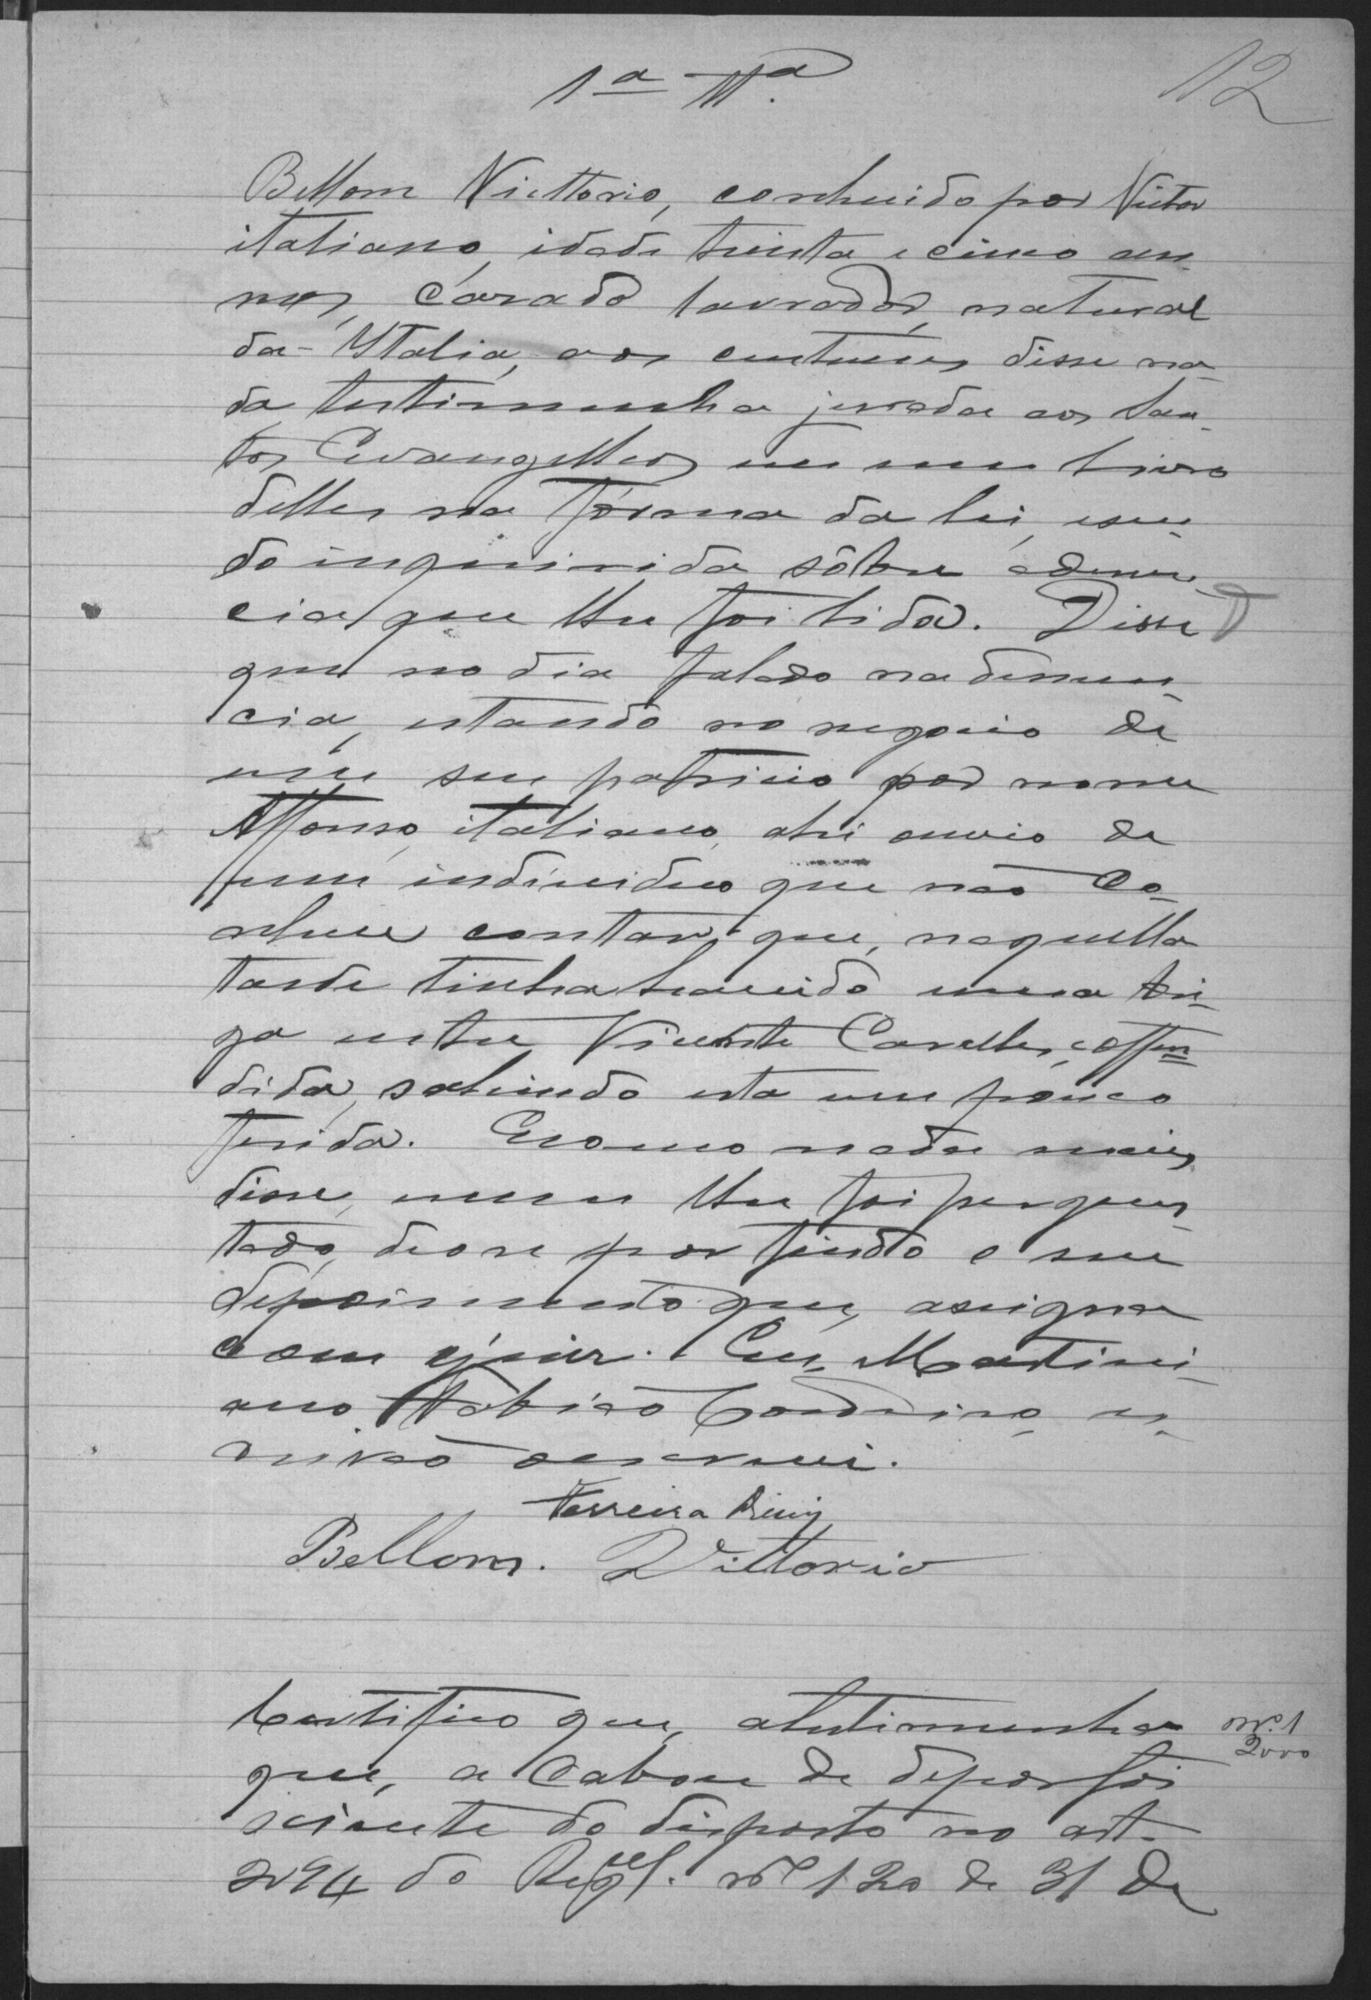 12
1ª Tª
Bellom Victtorio, conhecido por Victor
italiano, idade trinta e cinco an-
nos, casado lavrador, natural
da Italia, aos custumes disse na-
da testimunha jurada aos San-
tos Evangelhos em um livro
delles na fórma da lei, e sen-
do inquirida sôbre a denun-
cia que lhe foi lida. Disse
que no dia falado na denun-
cia, estando no negocio de
um seu patricio por nome
Affonso, italiano, ahi ouvio de
um individuo que não co-
nhece contar que, naquella
tarde tinha havido uma bri-
ga entre Vicente e offen-
dida, sahindo esta um pouco
ferida. E como nada mais
disse, nem lhe foi pergun-
tado, deo se por findo o seu
depoimento que, assigna
com o juiz. Eu, Martini-
ano Cordeiro, es-
crivão o escrevi.
Ferreira
Bellom. Vittorio
Certifico que, a testimunha
que, acabou de depor foi
sciente do disposto no art.
294 do Regul. nº 120 de 31 de
Nº 1
2000